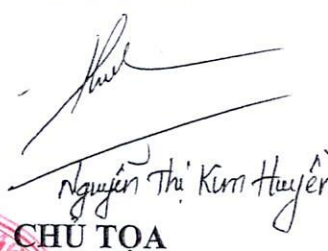 Nguyễn Thị Kim Huyền
CHỦ TỌA